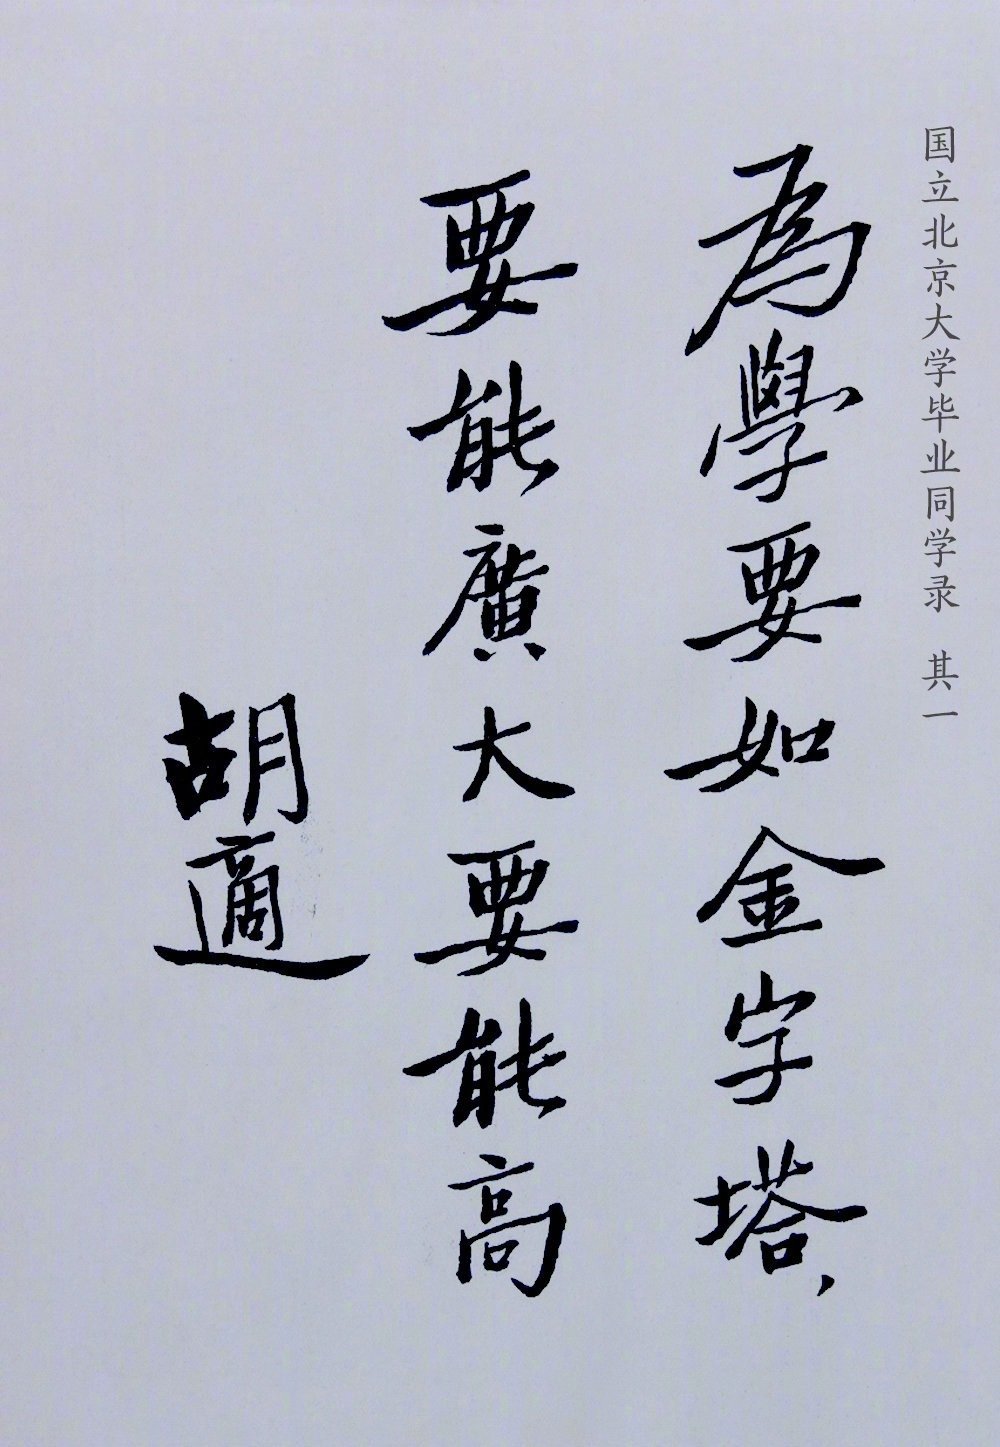 国立北京大学毕业同学录 其一
為學要如金字塔，
要能廣大要能高
胡適